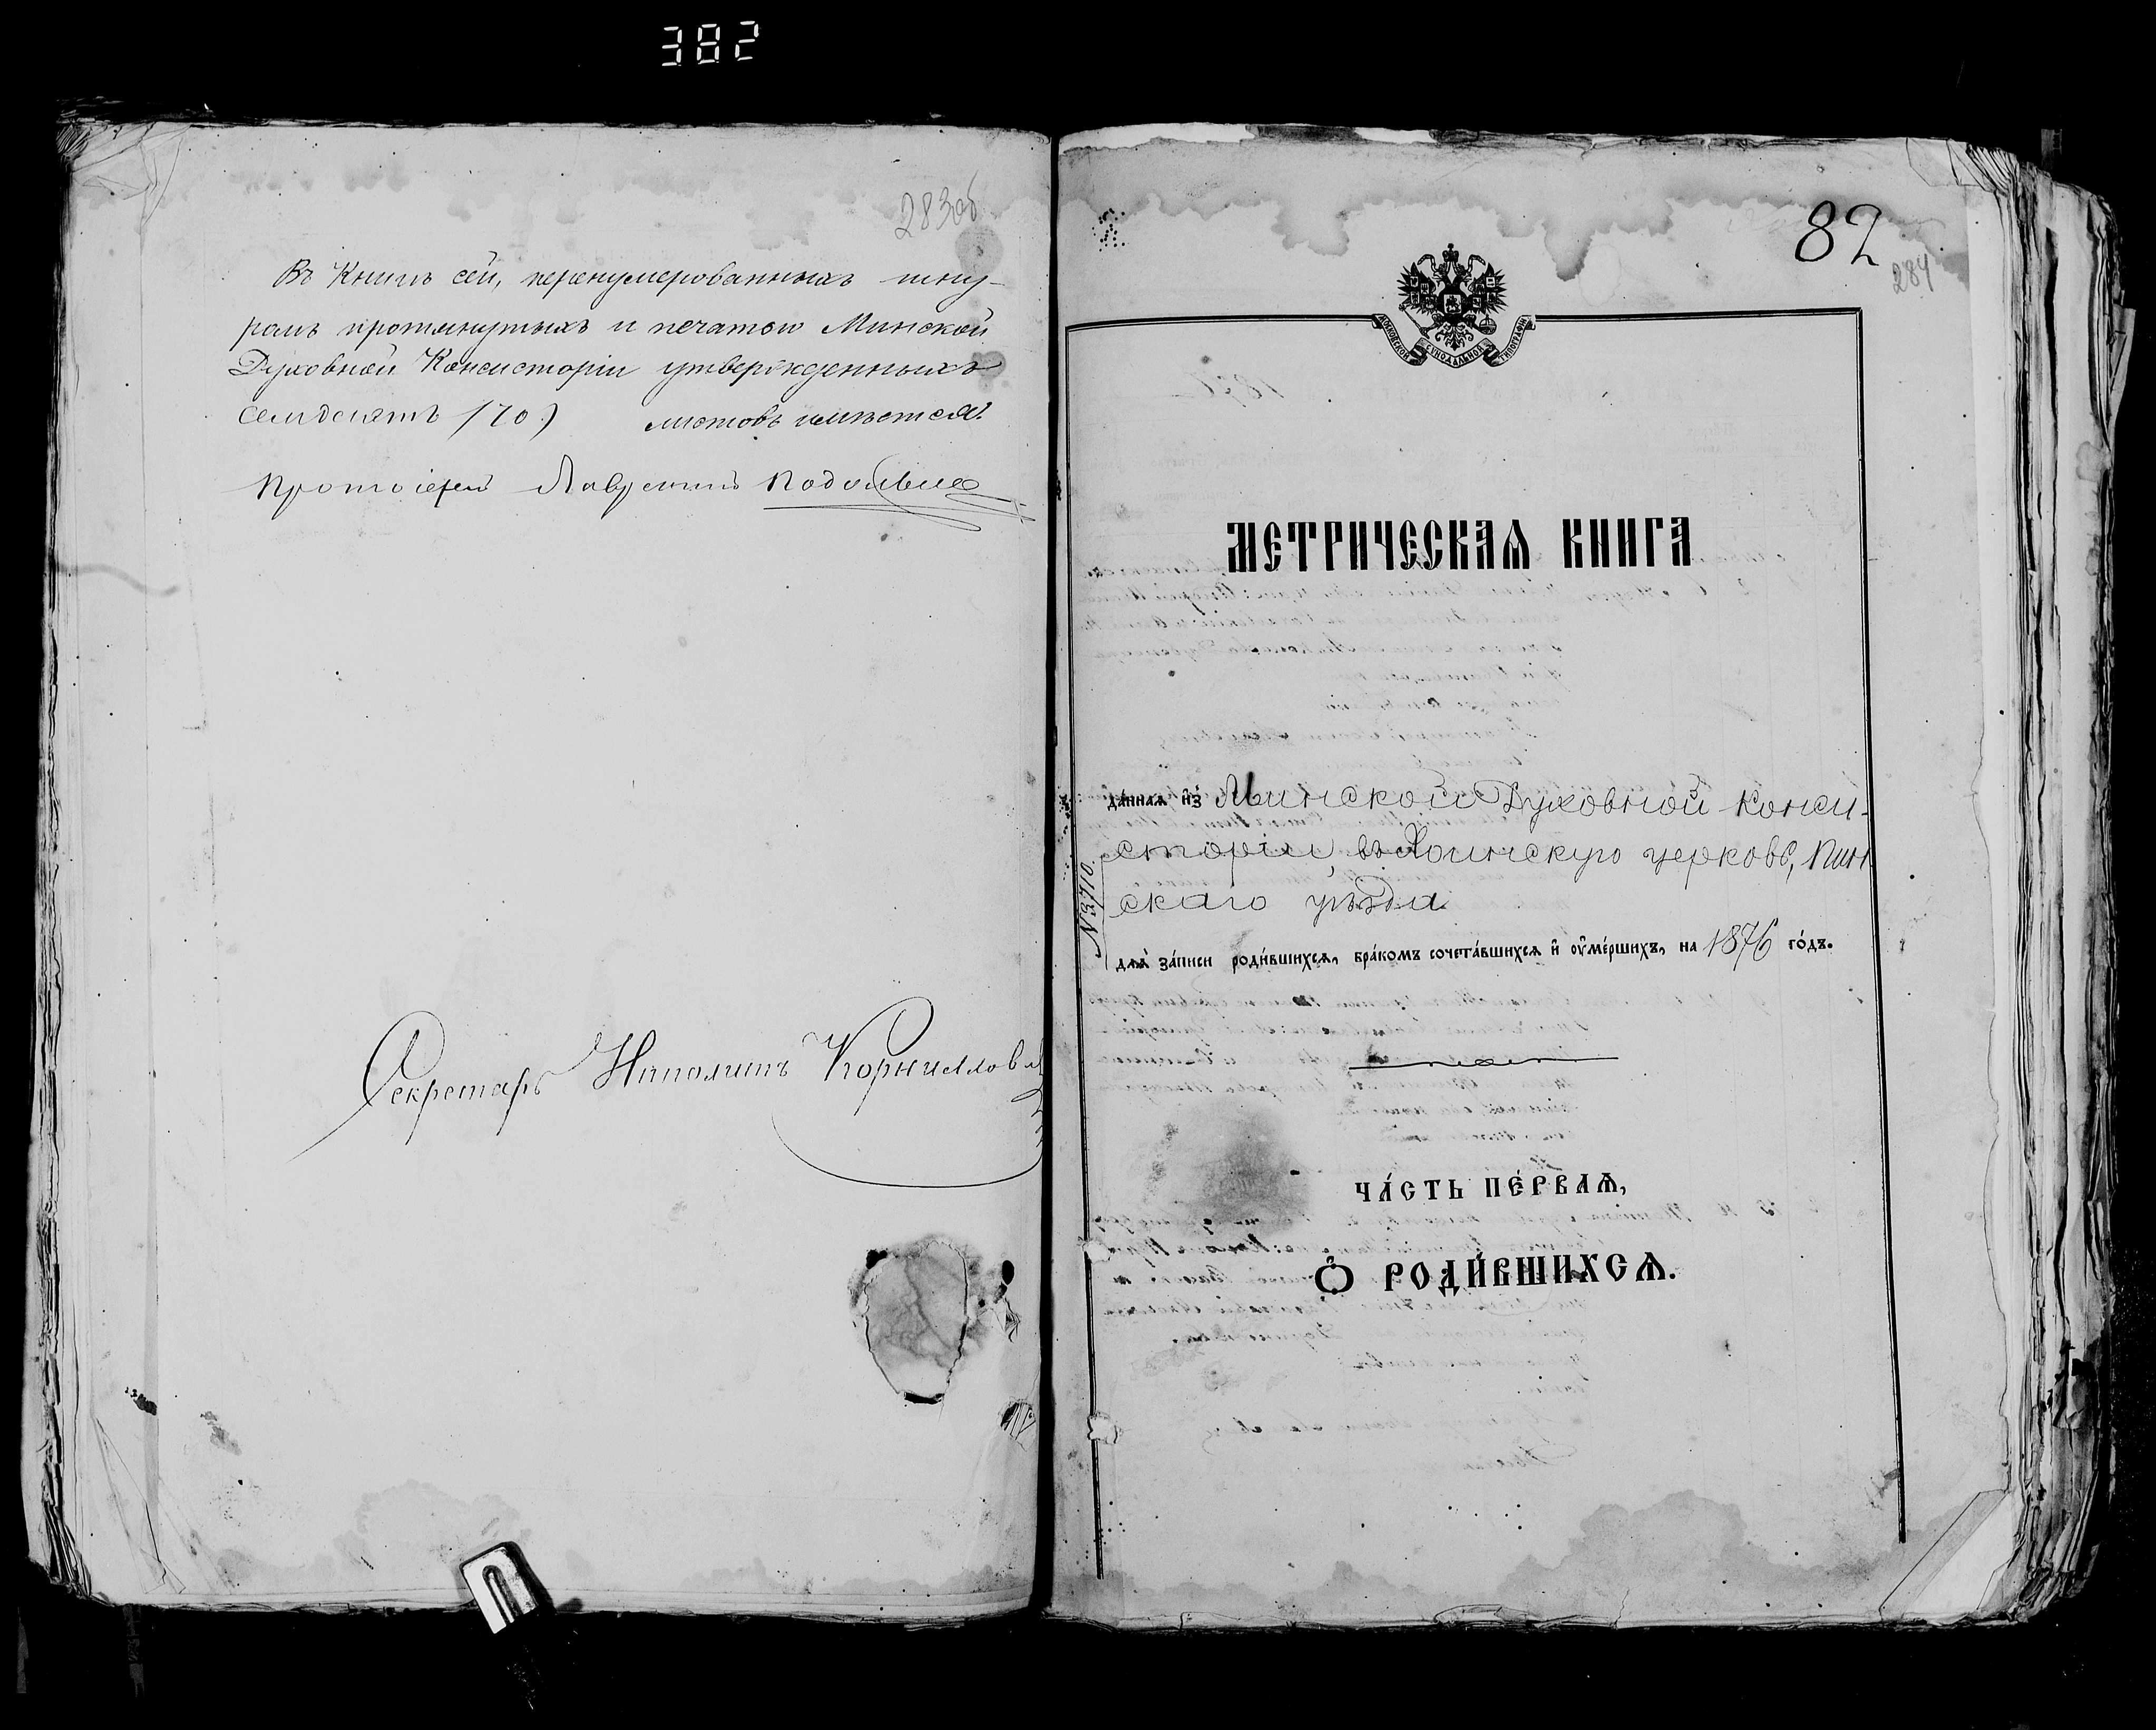 382
283об
Въ Книгѣ сей, перенумерованныхъ шну-
ромъ протянутыхъ и печатью Минской
Духовной Консисторіи утвержденныхъ
семдесятъ (70) листовъ имѣется.
Протоіерей Лаврентій
Секретарь Корниловъ
82
284
МОСКОВСКОЙ СѴНОДАЛЬНОЙ ТИПОГРАФІИ
МЕТРИЧЕСКАѦ КНИГА
да́ннаѧ и҆з̾ Минской Духовной Конси-
сторіи, въ Хоинскую церковь, Пин
скаго уѣзда
№ 3710.
длѧ̀ за́писи роди́вшихсѧ, бра́комъ сочета́вшихсѧ и҆ ѹ҆ме́ршихъ, на 1876 го́дъ.
ЧА́СТЬ ПЕ́РВАѦ,
Ѽ РОДИ́ВШИХСѦ.